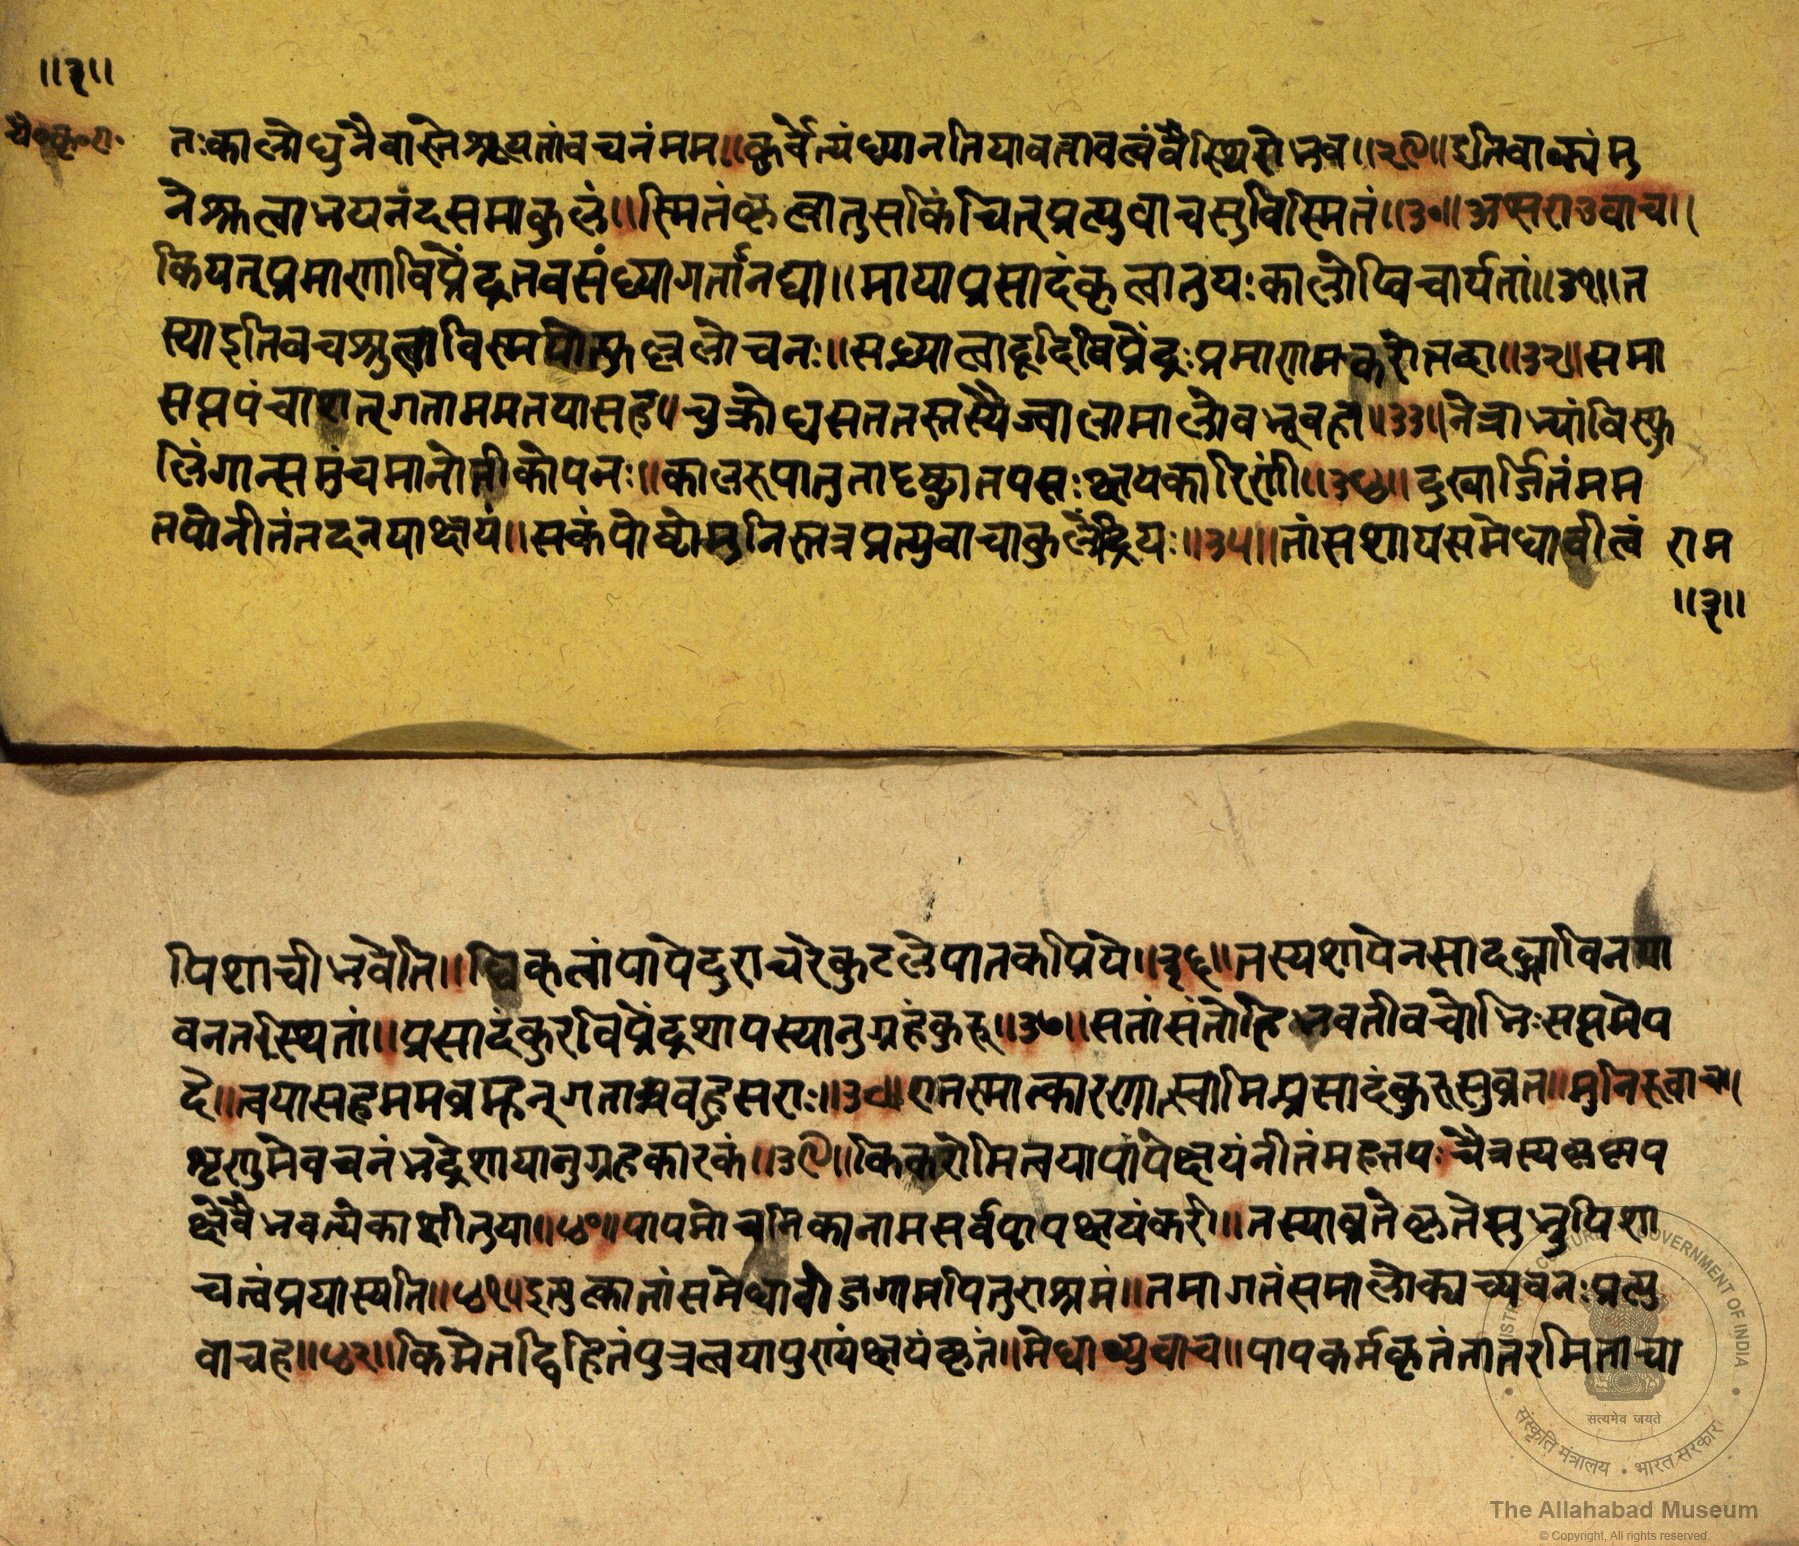 ॥३॥
चै॰कृ॰ए॰
तःकालोधुनैवास्तेश्रूयतांवचनंमम॥कुर्वेत्यंध्यानतियावत्तावत्वंवैस्थिरोभव॥२९॥इतिवाक्यंमु
नेश्रुत्वाभयनंदसमाकुलं॥स्मितंकृत्वातुसकिंचित्प्रत्युवाचसुविस्मितं॥३०॥अप्सराउवाच॥
कियत्प्रमाणाविप्रेंद्रतवसंध्यागतानघा॥मायाप्रसादंकृत्वातुयःकालोपिचार्यतां॥३१॥त
स्याइतिवचश्रुत्वाविस्मयोत्फुल्ललोचनः॥सध्यात्वाहृदिविप्रेंद्रःप्रमाणमकरोत्तदा॥३२॥समा
सप्तपंचाशत्गताममतयासह॥चुक्रोधसततस्तस्यैज्वालामालोवभूवह॥३३॥नेत्राभ्यांविस्फु
लिंगान्समुंचमानोतिकोपनः॥कालरूपातुतादृष्ट्वातपसःक्षयकारिणीं॥३४॥दुखार्जितंमम
तपोनीतंतदनयाक्षयं॥सकंपोष्टोमुनिस्तत्रप्रत्युवाचाकुलेंद्रियः॥३५॥तांसशापसमेधावीत्वं राम
॥३॥
पिशाचीभवेति॥धिक्त्वांपापेदुराचरेकुटलेपातकप्रिये॥३६॥तस्यशापेनसादग्धाविनया
वनतस्थितां॥प्रसादंकुरविप्रेंद्रशापस्यानुग्रहंकुरू॥३७॥सतांसंतोहिभवतीवचोभिःसप्तमेप
दे॥त्वयासहममब्रह्मन्गताश्चवहुसराः॥३८॥एतस्मात्कारणात्स्वामिन्प्रसादंकुरुसुव्रत॥मुनिरूवाच॥
शृणुमेवचनंभद्रेशापानुग्रहकारकं॥३९॥किंकरोमित्वयापापेक्षयंनीतंमहत्तपःचैत्रस्यकृष्णप
क्षेवैभवत्येकादशीतुया॥४०॥पापमोचनिकानामसर्वपापक्षयंकरी॥तस्याव्रतेकृतेसुभ्रुपिशा
चत्वंप्रयास्यति॥४१॥इत्युत्कातांसमेधावीजगामपितुराश्रमं॥तमागतंसमालोक्यच्यवनःप्रत्यु
वाचह॥४२॥किमेतद्विहितंपुत्रत्वयापुण्यंक्षयंकृतं॥मेधाव्युवाच॥पापकर्मकृतंतातरमिताचा
सत्यमेव जयते
संस्कृति मंत्रालय • भारत सरकार
The Allahabad Museum
© Copyright, All rights reserved.